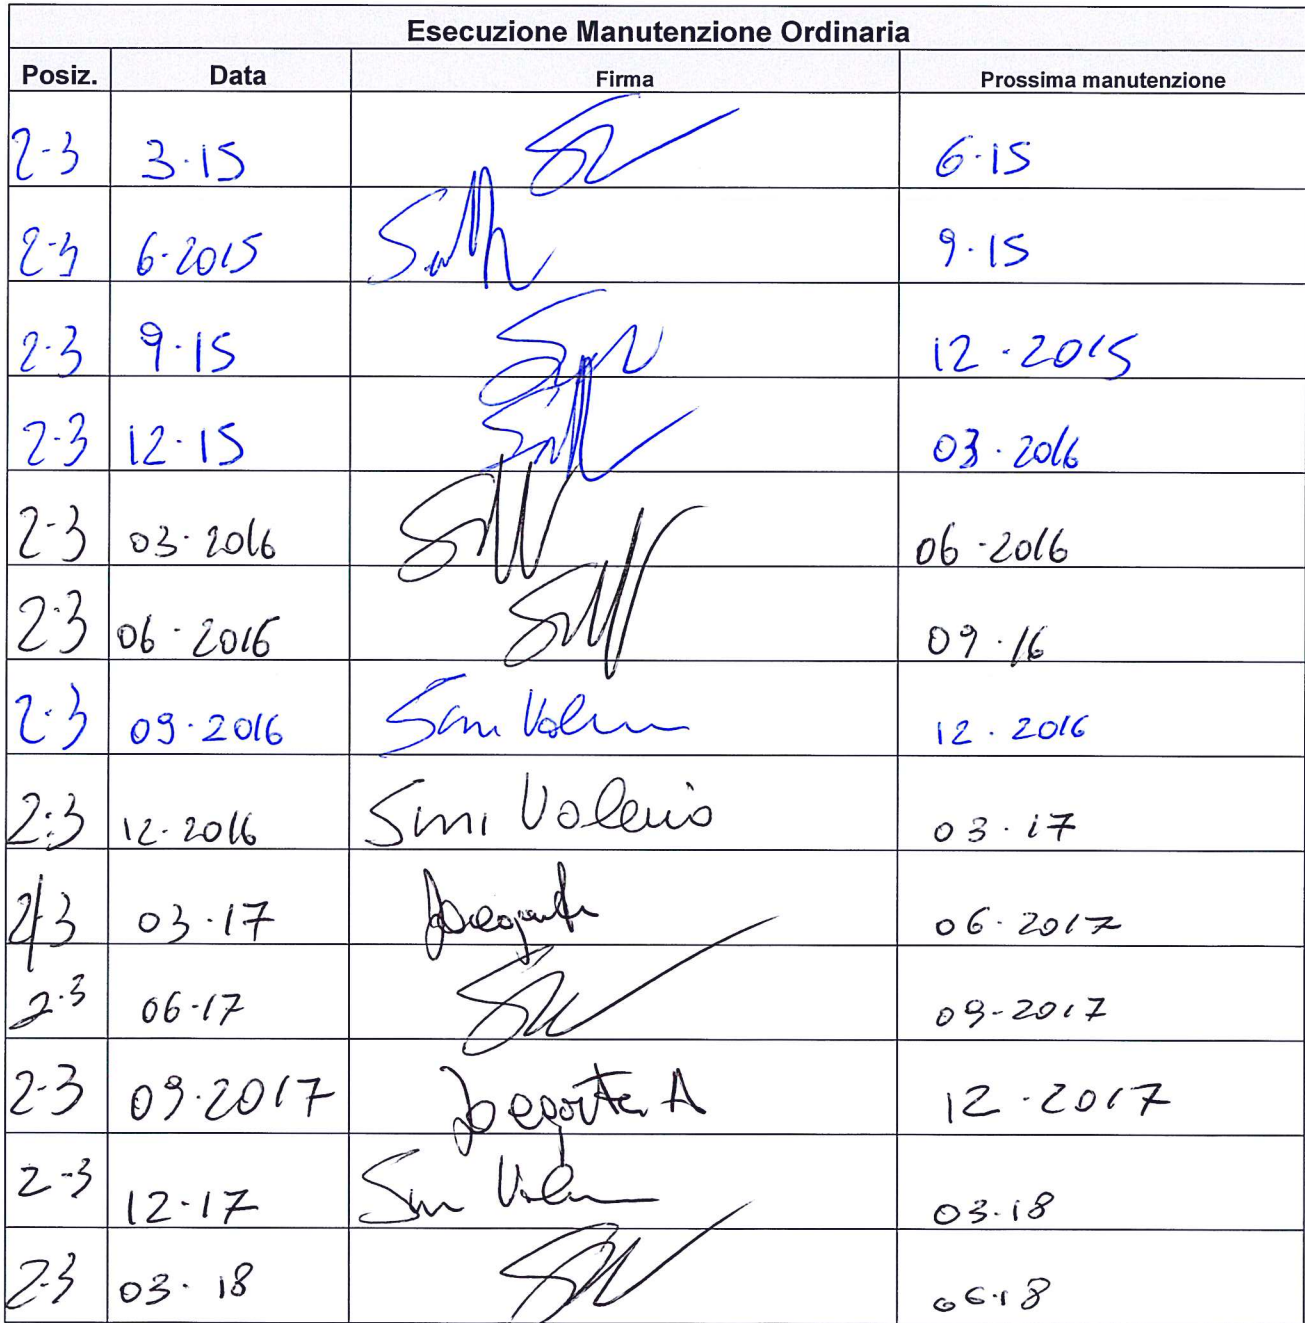 Esecuzione Manutenzione Ordinaria
Posiz. Data Firma Prossima manutenzione
2-3 3·15 6·15
2-3 6·2015 9·15
2·3 9·15 12·2015
2·3 12·15 03·2016
2-3 03·2016 06·2016
2·3 06·2016 09·16
2·3 09·2016 12·2016
2:3 12·2016 Simi Valerio 03·17
2-3 03·17 06·2017
2·3 06·17 09-2017
2-3 09·2017 12·2017
2-3 12·17 03·18
2-3 03·18 06·18